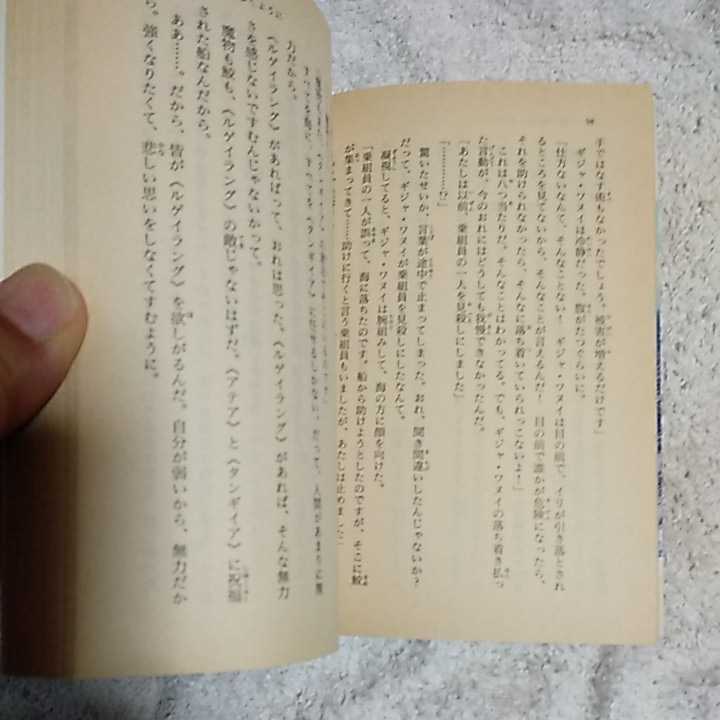 手ではなす術もなかったでしょう。被害が増えるだけです」
ギジャ・ワヌイは冷静だった。腹がたつぐらいに。
「仕方ないなんて、そんなことない！ ギジャ・ワヌイは目の前で、イリが引き落とされ
るところを見てないから、そんなことが言えるんだ！ 目の前で誰かが危険になったら、
それを助けられなかったら、そんなに落ち着いていられっこないよ！」
これは八つ当たりだ。そんなことはわかってる。でも、ギジャ・ワヌイの落ち着き払っ
た言動が、今のおれにはどうしても我慢できなかったんだ。
「あたしは以前、乗組員の一人を見殺しにしました」
「…………!?」
驚いたせいか、言葉が途中で止まってしまった。おれ、聞き間違いしたんじゃないか？
だって、ギジャ・ワヌイが乗組員を見殺しにしたなんて。
凝視してると、ギジャ・ワヌイは腕組みして、海の方に顔を向けた。
「乗組員の一人が誤って、海に落ちたのです。船から助けようとしたのですが、そこに鮫
が集まってきて……助けに行くと言う乗組員もいましたが、あたしは止めました」
力だから。
《ルゲイラング》があればって、おれは思った。《ルゲイラング》があれば、そんな無力
さを感じないですむんじゃないかって。
魔物も鮫も、《ルゲイラング》の敵じゃないはずだ。《アテア》と《タンギイア》に祝福
された船なんだから。
ああ……。だから、皆が《ルゲイラング》を欲しがるんだ。自分が弱いから、無力だか
ら。強くなりたくて、悲しい思いをしなくてすむように。